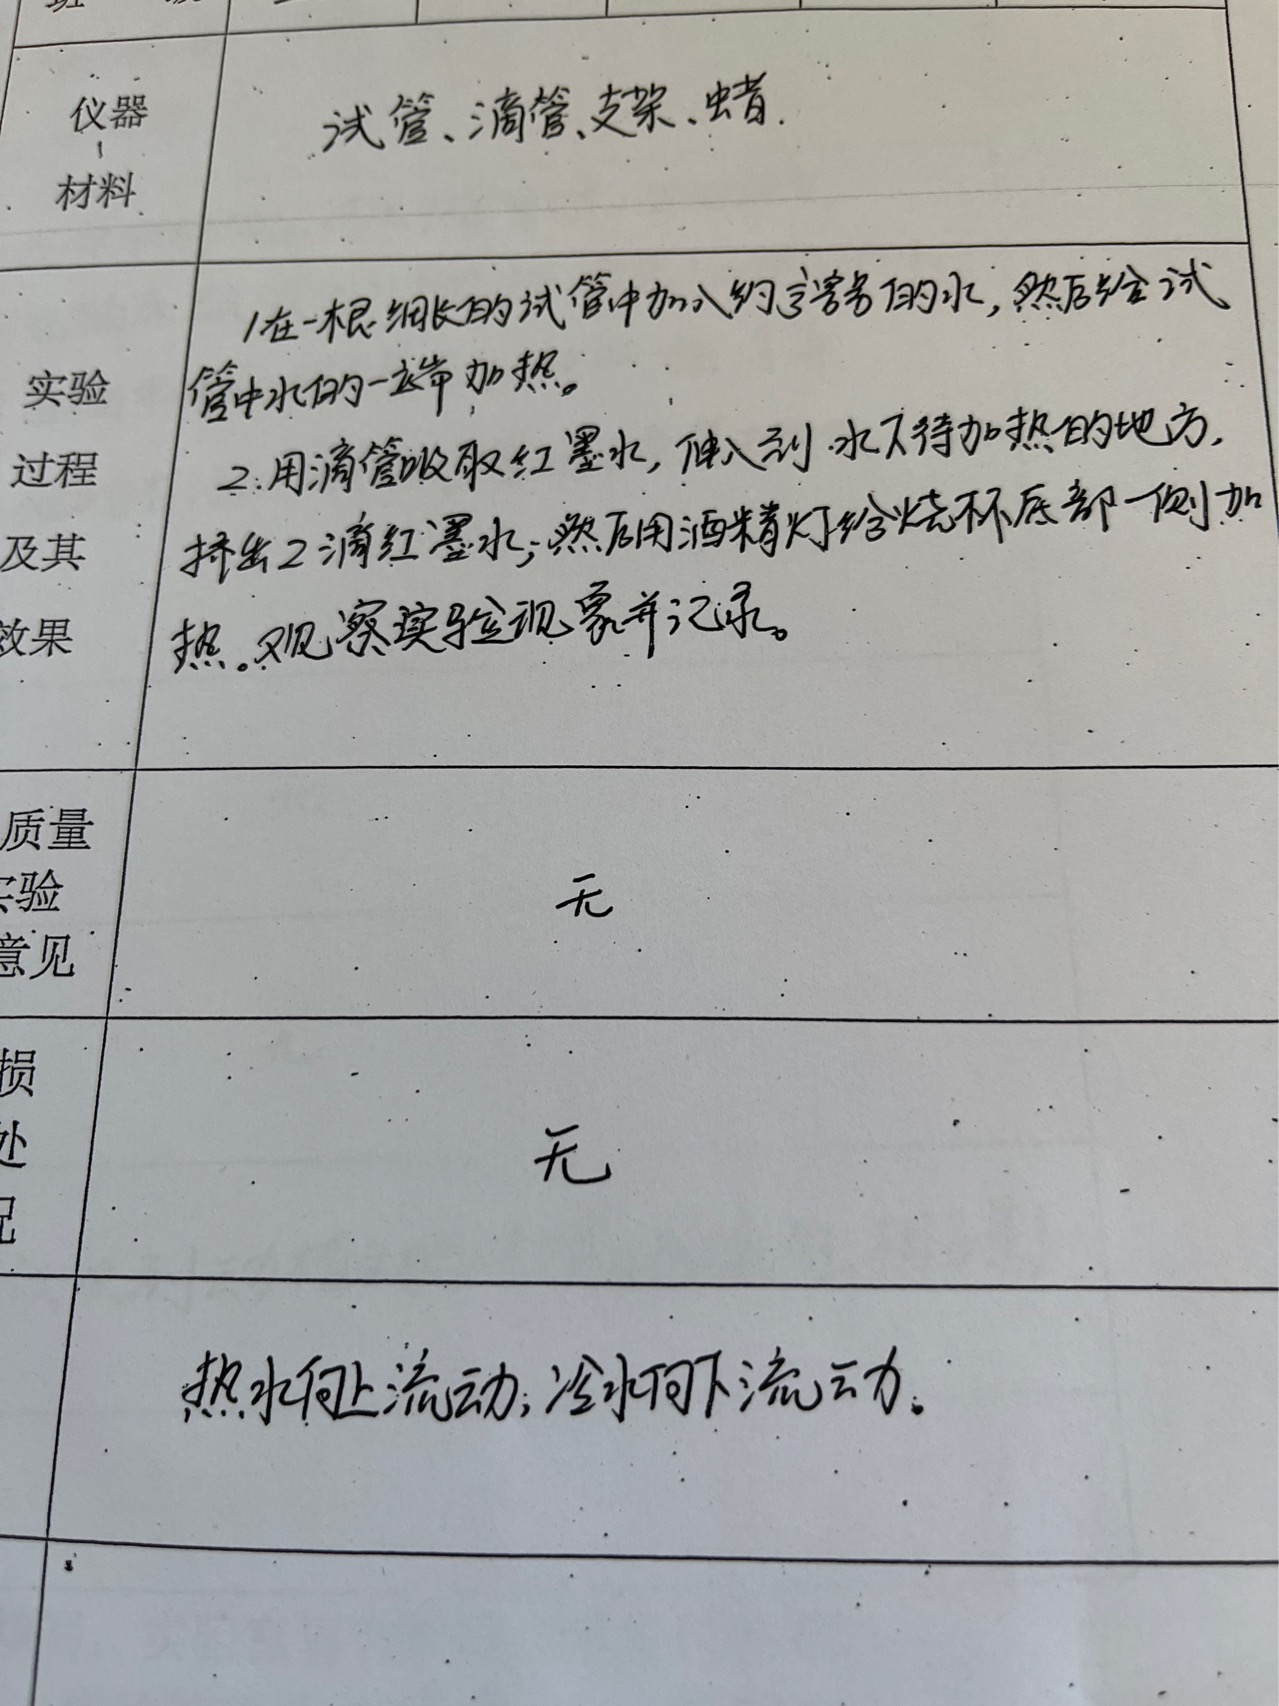 仪器
材料
试管、滴管、支架、蜡.
实验
过程
及其
效果
1在一根细长的试管中加入约 的水,然后给试
管中水的一端加热。
2.用滴管吸取红墨水,伸入到水下待加热的地方,
挤出2滴红墨水;然后用酒精灯给烧杯底部一侧加
热。观察实验现象并记录。
质量
实验
意见
无
损
处
况
无
热水向上流动;冷水向下流动。